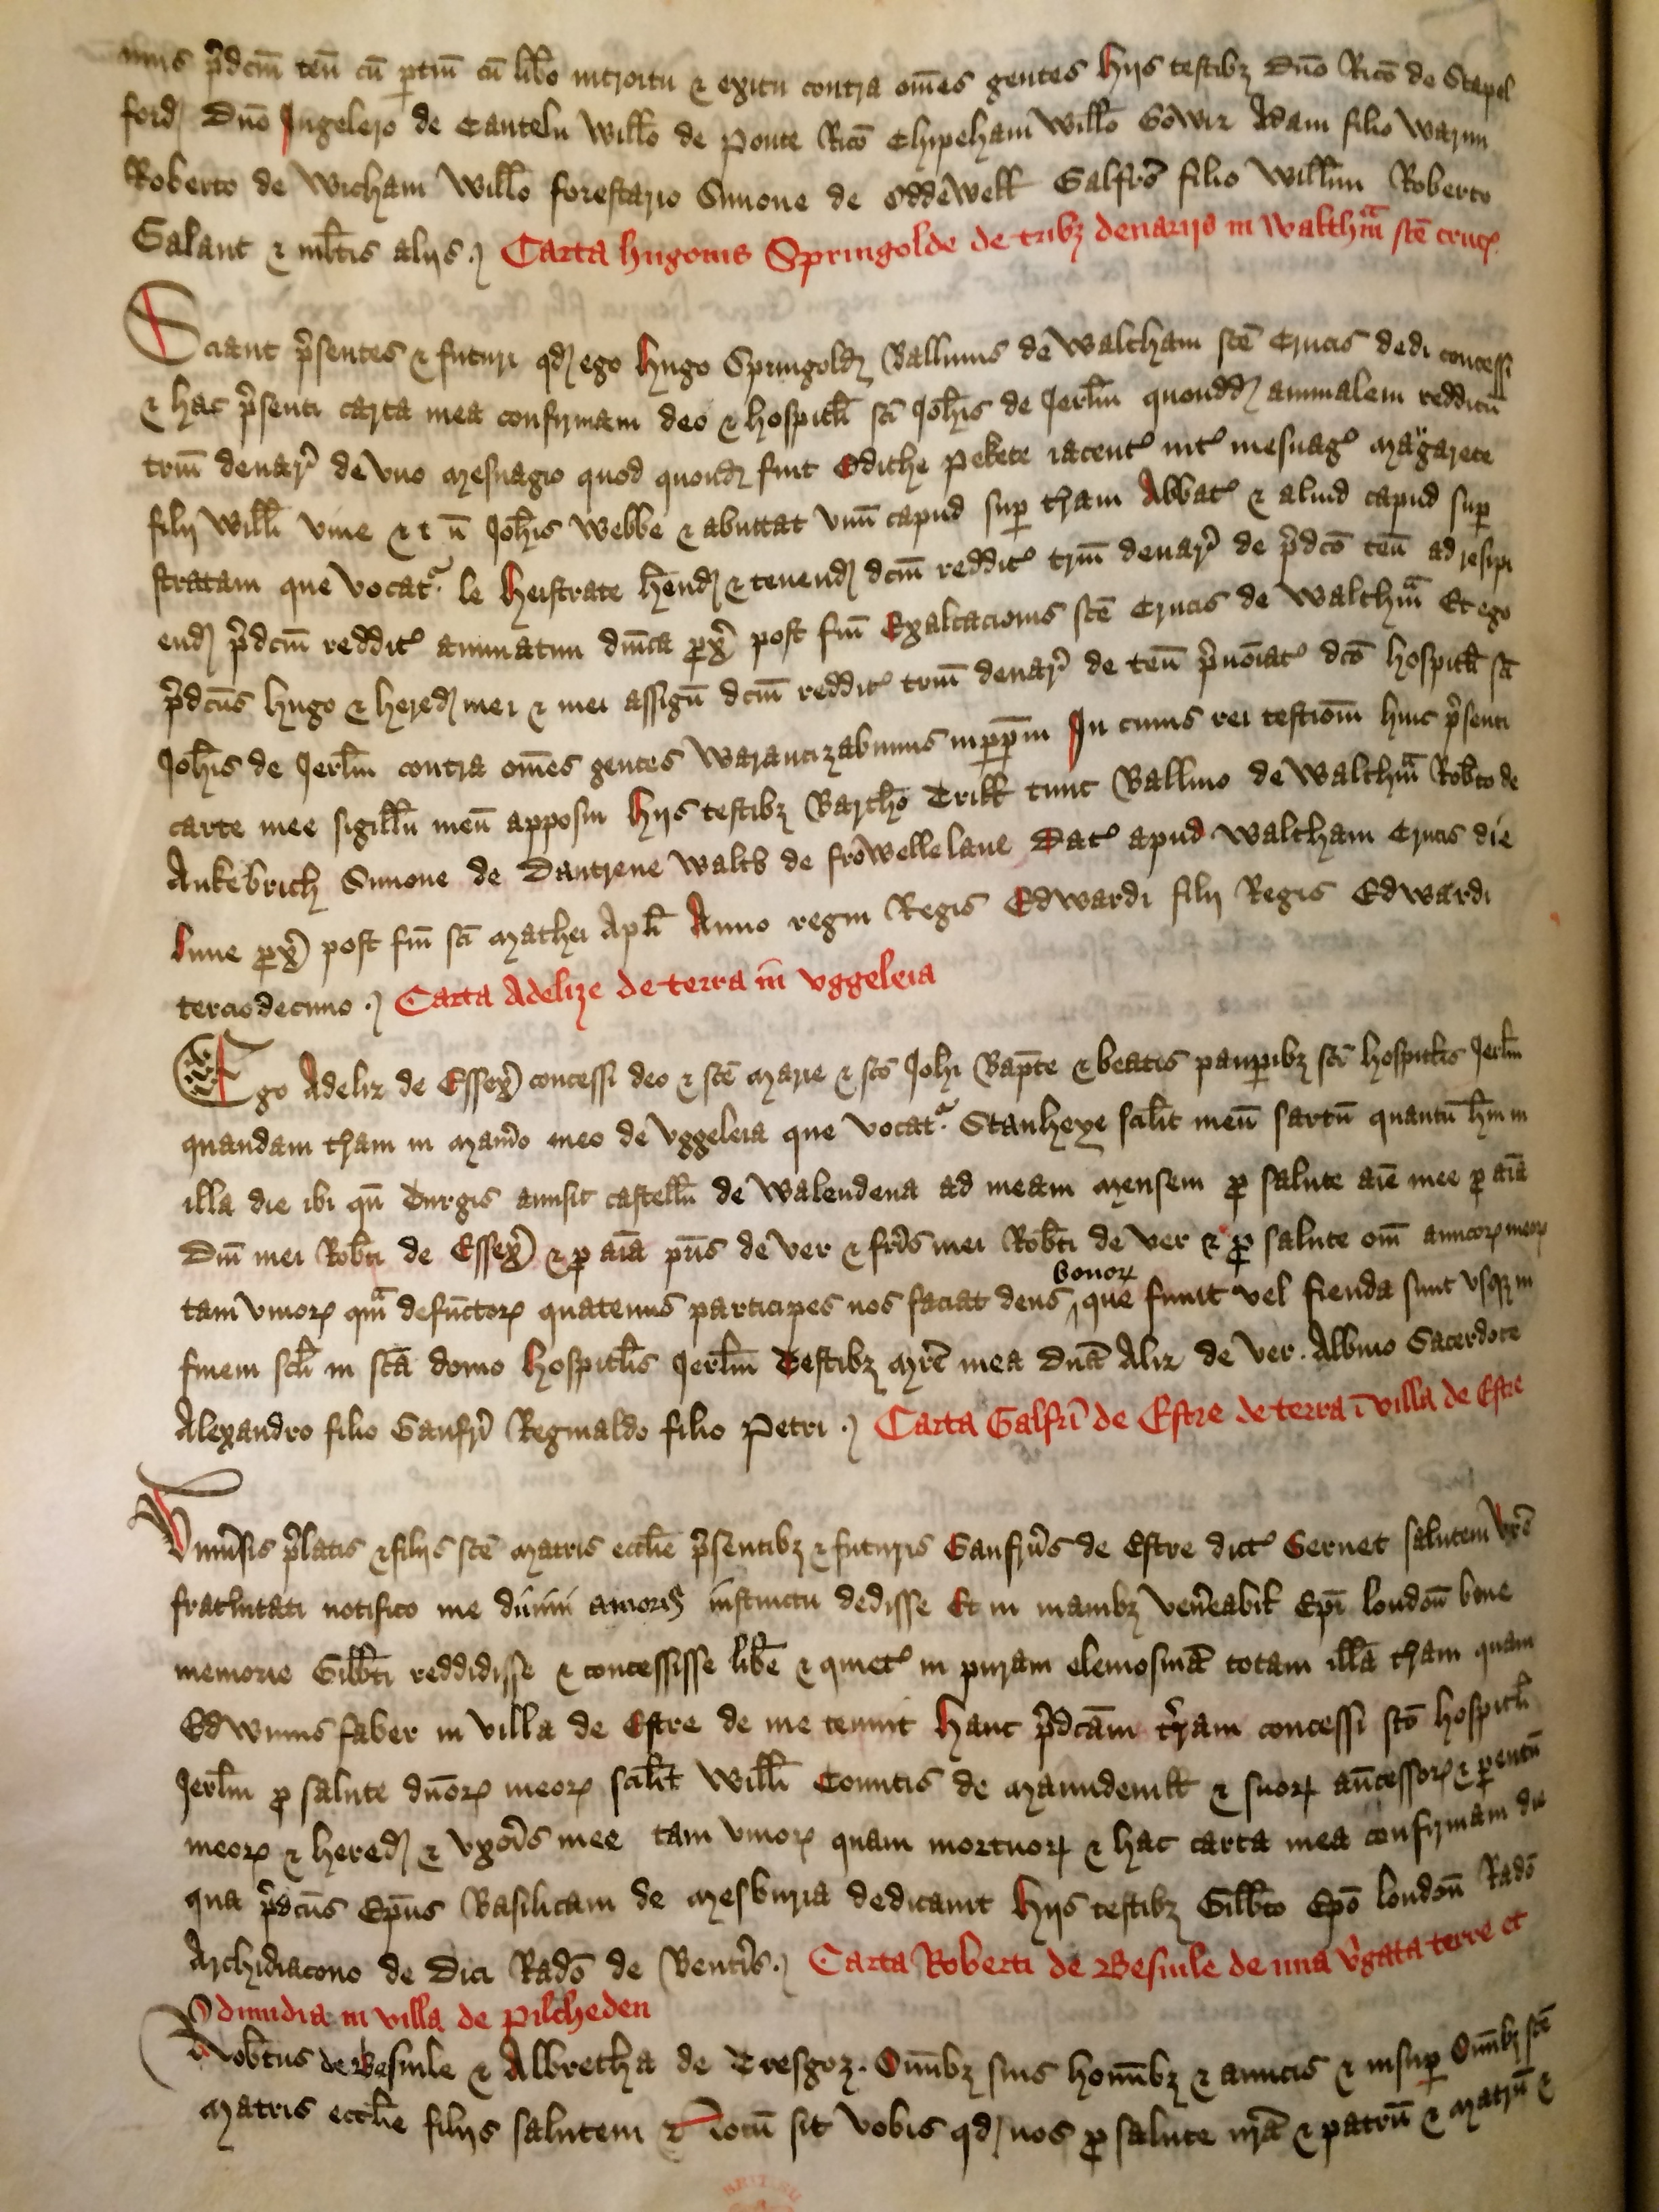 p̄dcm̄ ten̄ cū ptin̄ cū lib̄o introitu & exitu contra om̄es gentes Hijs testibȝ Dn̄o Ric̄o de Stapel
ford Dn̄o Ingelero de Cantelu Will̄o de Ponte Ric̄o Chipeham Will̄o Adam filio Warini
Roberto de Wicham Will̄o forestario Simone de Oddewell Galfr̄o filio Willm̄i Roberto
Galant & ml̄tis alijs Carta Hugonis Springolde de tribȝ denarijs in Walthm̄a sc̄e cruc
Sciant p̄sentes & futuri qd ego Hugo Springold Balliuus de Waltham sc̄e Crucis dedi concessi
& hac p̄senti carta mea confirmaui deo & hospitl̄i sc̄i Joh̄is de Jerl̄m quondd annualem redditū
triū denar̄ de vno mesuagio quod quond fuit Edithe Pekete iacent int mesuag Margarete
filij Will̄i Vine & t ū Joh̄is Webbe & abuttat vnū capud sup tram Abbat & aliud capud sup
stratam que vocat le Heistrate h̄end & tenend dcm̄ reddit triū denar̄ de p̄dc̄o ten̄ ad resipi
end p̄dcm̄ reddit annuatim dn̄ica px̄ post fm̄ Exaltacionis sc̄e Crucis de Walthm̄a Et ego
p̄dcūs Hugo & hered mei & mei assign̄ dcm̄ reddit triū denar̄ de ten̄ p̄noīat dc̄o hospitl̄ sc̄i
Joh̄is de Jerl̄m contra om̄es gentes Warantizabimus inppm̄ In cuius rei testiom̄ huic p̄senti
carte mee sigillū meū apposui Hijs testibȝ Barth̄o Trikk tunc Balliuo de Walthm̄a Rob̄to de
Ankebrich Simone de Dantrene Walt̄o de frowellelane Dat apud Waltham Crucis die
lune px̄ post fm̄ sc̄i Mathei Apl̄i Anno regni Regis Edwardi filij Regis Edwardi
terciodecimo Carta Adelize de terra in Vggeleia
Ego Adeliz de Essex̄ concessi deo & sc̄e Marie & sc̄o Joh̄i Bap̄te & beatis paupibȝ sc̄i hospitl̄is Jerl̄m
quandam tram in man̄io meo de Vggeleia que vocat Stanhexe scil̄it meū sartū quantū h̄ui in
illa die ibi qn̄ Turgis amisit castellū de Walendena ad meam mensem p salute aīe mee p aīa
Dn̄i mei Rob̄ti de Essex̄ & p aīa p̄ris de Ver & fr̄is mei Rob̄ti de Ver & p salute om̄ amicoꝝ meoꝝ
tam viuoꝝ qm̄ defunctoꝝ quatenus participes nos faciat deus bonoꝝ que fiunt vel fienda sunt vsqȝ in
finem scl̄i in sc̄a domo Hospitl̄is Jerl̄m Testibȝ Mr̄e mea Dn̄a Aliz de Ver. Albino Sacerdote
Alexandro filio Gaufr̄i Reginaldo filio Petri Carta Galfr̄i de Estre de terra ī villa de Estre
Vniūsis p̄latis & filijs sc̄e Matris eccl̄ie p̄sentibȝ & futuris Gaufrūs de Estre dict Gernet salutem vr̄e
frat̄nitati notifico me diuini amoris instinctu dedisse Et in manibȝ ven̄eabil̄ Ep̄i london̄ bone
memorie Gilb̄ti reddidisse & concessisse lib̄e & quiet in puram elemosinā totam illā tram quam
Edwinus faber in villa de Estre de me tenuit Hanc p̄dcām tr̄am concessi sc̄o hospitl̄i
Jerl̄m p salute dn̄oꝝ meoꝝ scil̄it Will̄i Comitis de Manndeuill & suoꝝ an̄cessoꝝ & pentū
meoꝝ & hered & vxor̄is mee tam viuoꝝ quam mortuoꝝ & hac carta mea confirmaui die
qua p̄dcūs Ep̄us Basilicam de Mesburia dedicauit Hijs testibȝ Gilb̄to Ep̄o london̄ Rad̄o
Archidiacono de Dici Rad̄o de Bent̄is Carta Roberti de Besuile de una v̄gata terre et
dimidia in villa de Pilcheden
Rob̄tus de Besuile & Albretha de Tresgoz. Om̄ibȝ suis hom̄ibȝ & amicis & insup Om̄ibȝ sc̄e
Matris eccl̄ie filijs salutem Notū sit vobis qd nos p salute nr̄a & patrū & matrū &